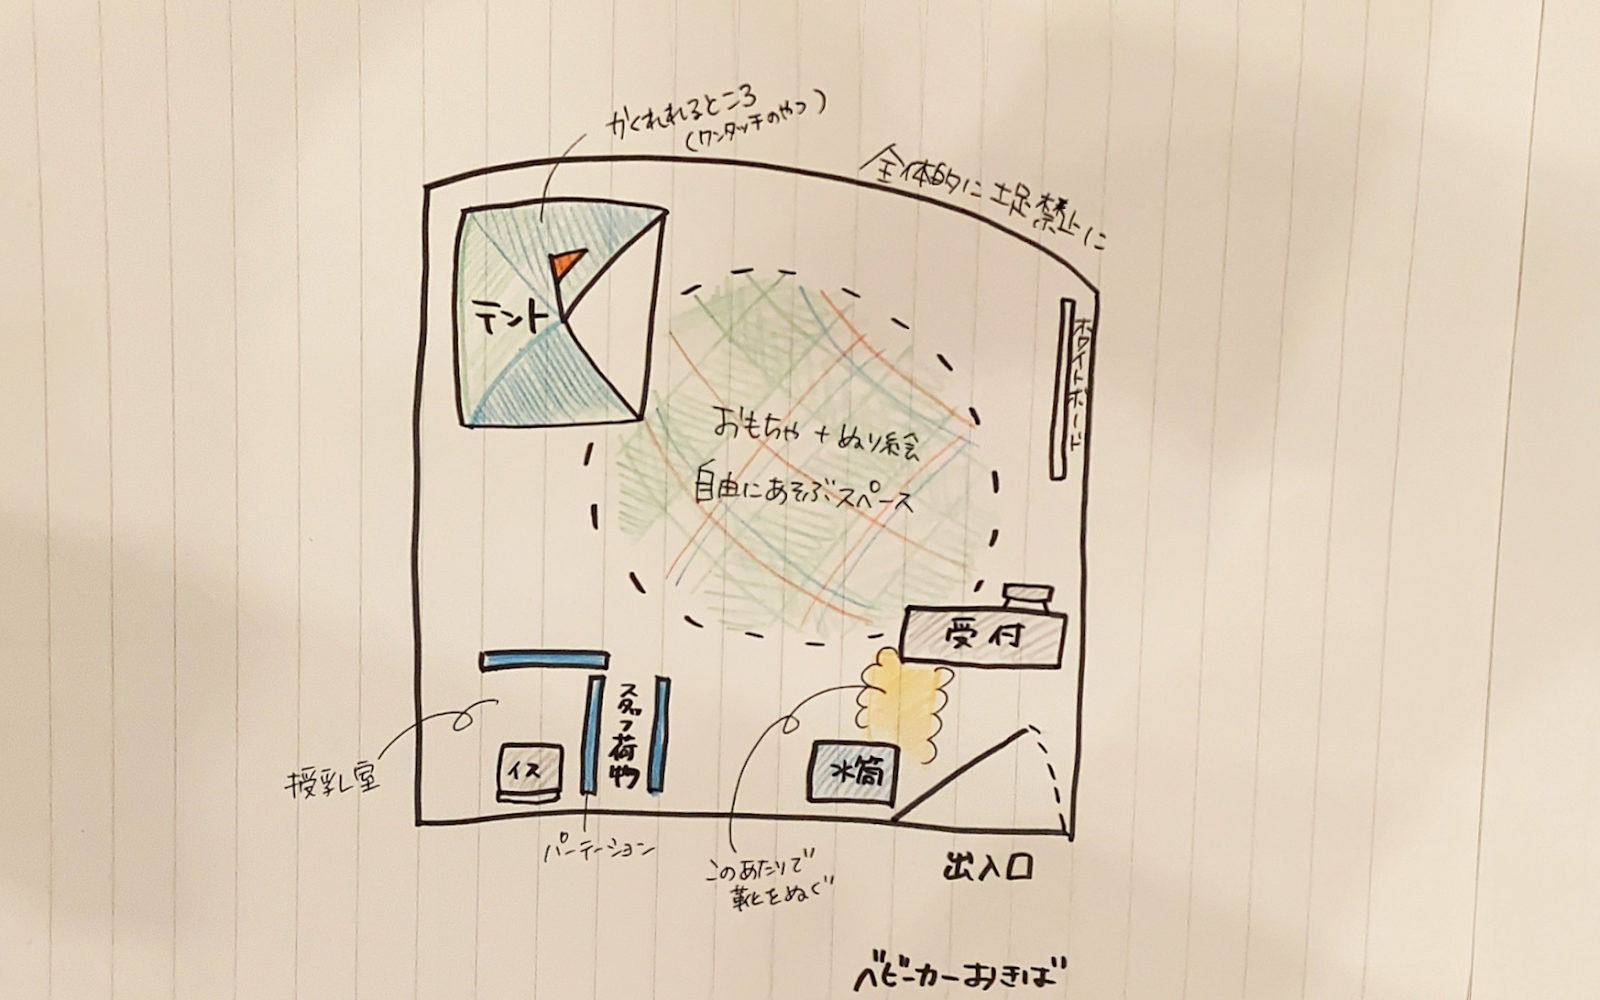 かくれれるところ
(ワンタッチのやつ)
全体的に土足禁止に
テント
ホワイトボード
おもちゃ+ぬり絵
自由にあそぶスペース
受付
スタッフ荷物
授乳室
イス
水筒
パーテーション
このあたりで
靴をぬぐ
出入口
ベビーカーおきば